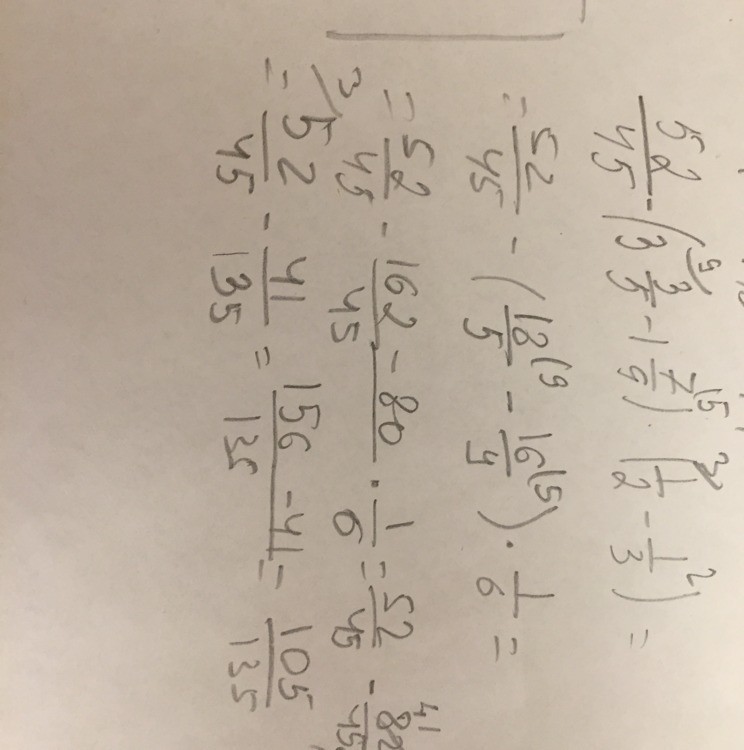 52/45 - (3 3/5⁹⁾ - 1 7/9⁽⁵) (1/2³⁾ - 1/3²⁾) =
= 52/45 - (18/5⁽⁹ - 16/9⁽⁵⁾) · 1/6 =
= 52/45 - (162 - 80)/45 · 1/6 = 52/45 - 82⁴¹/45
= ³⁾52/45 - 41/135 = (156 - 41)/135 = 105/135